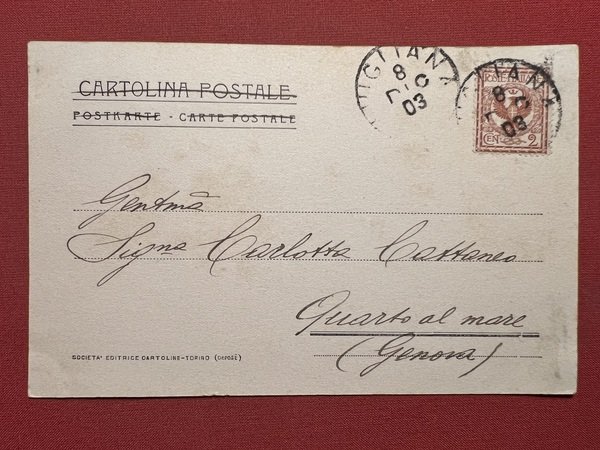 CARTOLINA POSTALE
POSTKARTE - CARTE POSTALE
UGLIANA
8
03
LIANA
8
03
CEN 2
Gentma
Sigma Carlotta Cattaneo
Quarto al mare
(Genova)
SOCIETA' EDITRICE CARTOLINE-TORINO (DEPOSÉ)